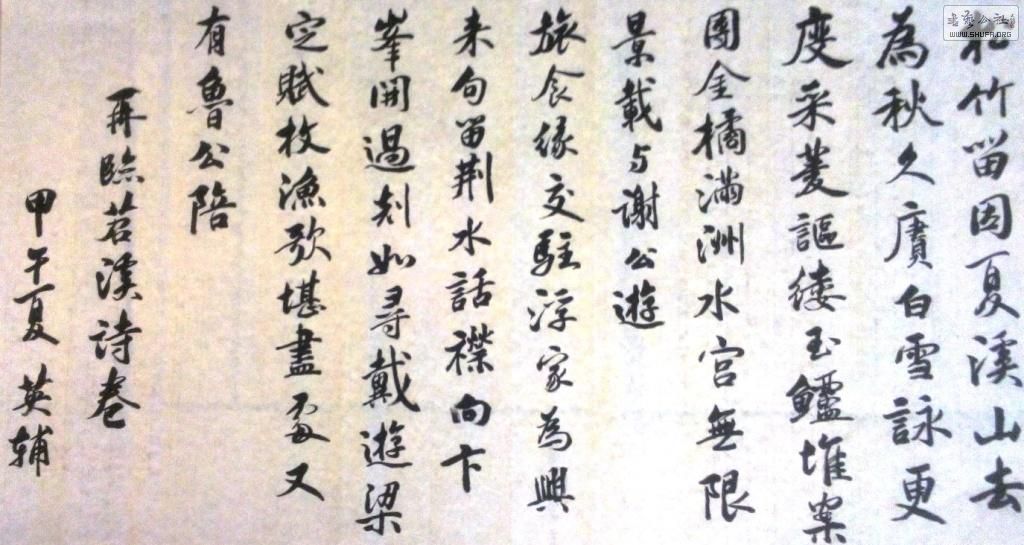 書藝公社
WWW.SHUFA.ORG
松竹留因夏溪山去
為秋久賡白雪詠更
度采菱謳縷玉鱸堆案
團金橘滿洲水宮無限
景載与謝公遊
旅食緣交駐浮家為興
来句留荊水話襟向卞
峯開過剡如尋戴遊梁
定賦枚漁歌堪畫處又
有魯公陪
再臨苕溪詩卷
甲午夏 英輔